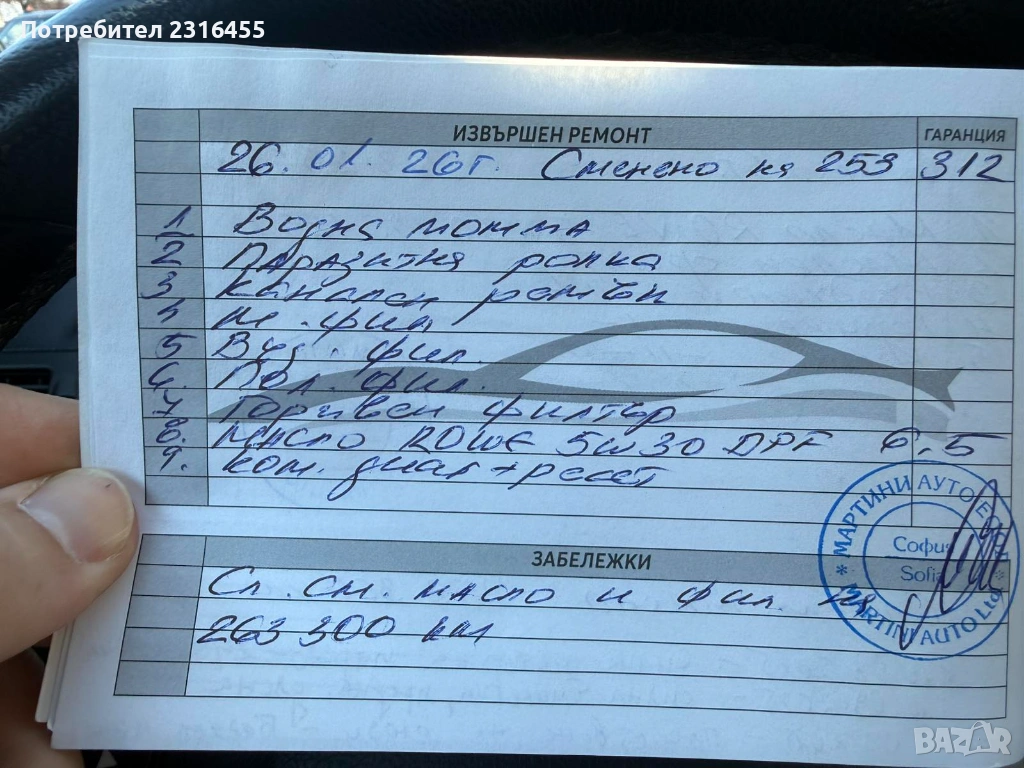 Потребител 2316455
ИЗВЪРШЕН РЕМОНТ ГАРАНЦИЯ
26. 01. 26г. Сменено на 253 312
1 Водна помпа
2 Паразитна ролка
3 Канален ремък
4 м. фил
5 Въз. фил.
6. Пол. фил.
7 Горивен филтър
8. Масло ROWE 5w30 DPF 6,5
9. Ком. диаг + ресет
МАРТИНИ АУТО
София
Sofia
MARTINI AUTO Ltd
ЗАБЕЛЕЖКИ
Сл. см. масло и фил.
263 300 км
BAZAR